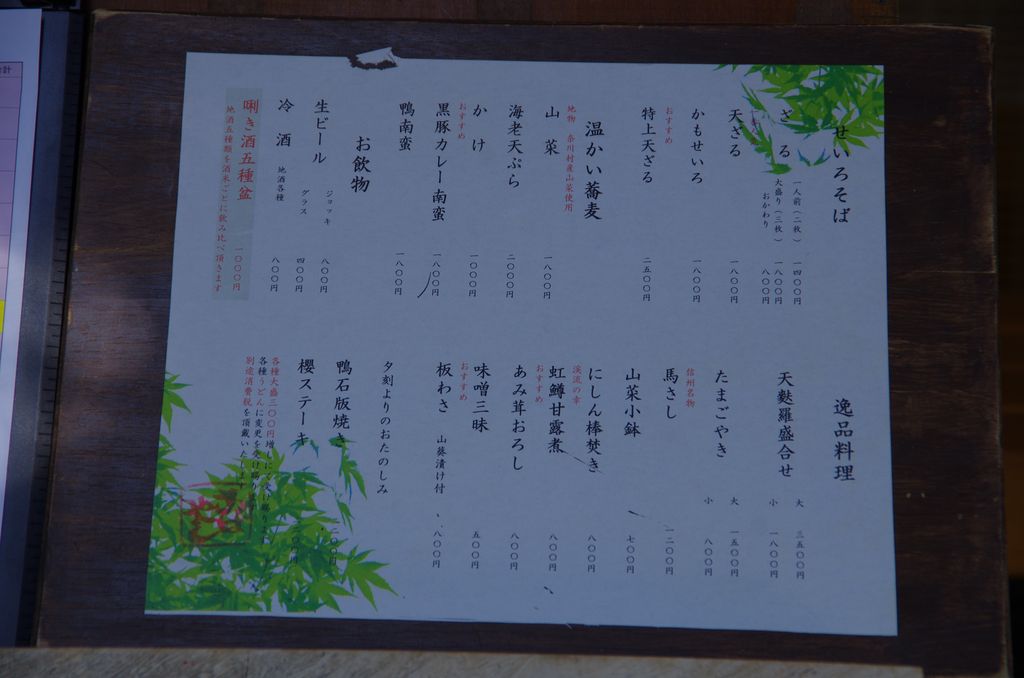 せいろそば
ざる 一人前(二枚) 一四〇〇円
大盛り(三枚) 一八〇〇円
おかわり 八〇〇円
天ざる 一八〇〇円
かもせいろ 一八〇〇円
おすすめ
特上天ざる 二五〇〇円
温かい蕎麦
地物 奈川村産山菜使用
山菜 一八〇〇円
海老天ぷら 二〇〇〇円
かけ 一〇〇〇円
おすすめ
黒豚カレー南蛮 一八〇〇円
鴨南蛮 一八〇〇円
お飲物
生ビール ジョッキ 八〇〇円
グラス 四〇〇円
冷酒 地酒各種 八〇〇円
唎き酒五種盆 一〇〇〇円
地酒五種類を酒米ごとに飲み比べ頂きます
逸品料理
天麩羅盛合せ 大 三五〇〇円
小 一八〇〇円
たまごやき 大 一五〇〇円
小 八〇〇円
信州名物
馬さし 一二〇〇円
山菜小鉢 七〇〇円
にしん棒焚き 八〇〇円
渓流の幸
虹鱒甘露煮 八〇〇円
おすすめ
あみ茸おろし 八〇〇円
味噌三昧 五〇〇円
おすすめ
板わさ 山葵漬け付 八〇〇円
夕刻よりのおたのしみ
鴨石版焼き
櫻ステーキ
各種大盛三〇〇円増しにて受け賜ります
各種うどんに変更を受け賜ります
別途消費税を頂戴いたします
計